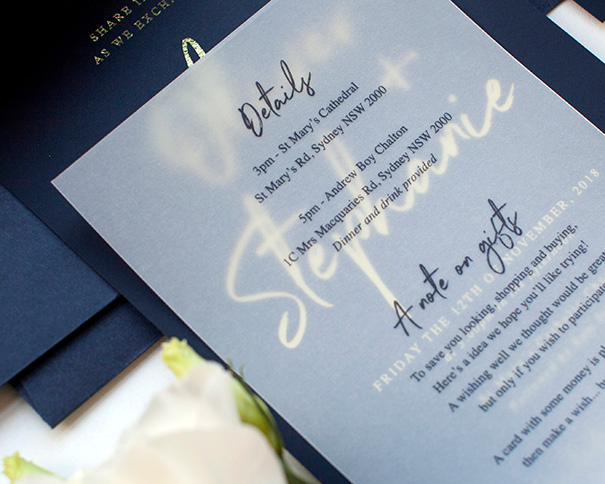 SHARE
AS WE EXCH
Details
3pm - St Mary's Cathedral
St Mary's Rd, Sydney NSW 2000
5pm - Andrew Boy Chalton
1C Mrs Macquaries Rd, Sydney NSW 2000
Dinner and drink provided
+
Stephanie
A note on gifts
FRIDAY THE 12TH OF NOVEMBER, 2018
To save you looking, shopping and buying,
Here's a idea we hope you'll like trying!
A wishing well we thought would be great
but only if you wish to participate
A card with some money is pl
then make a wish... b